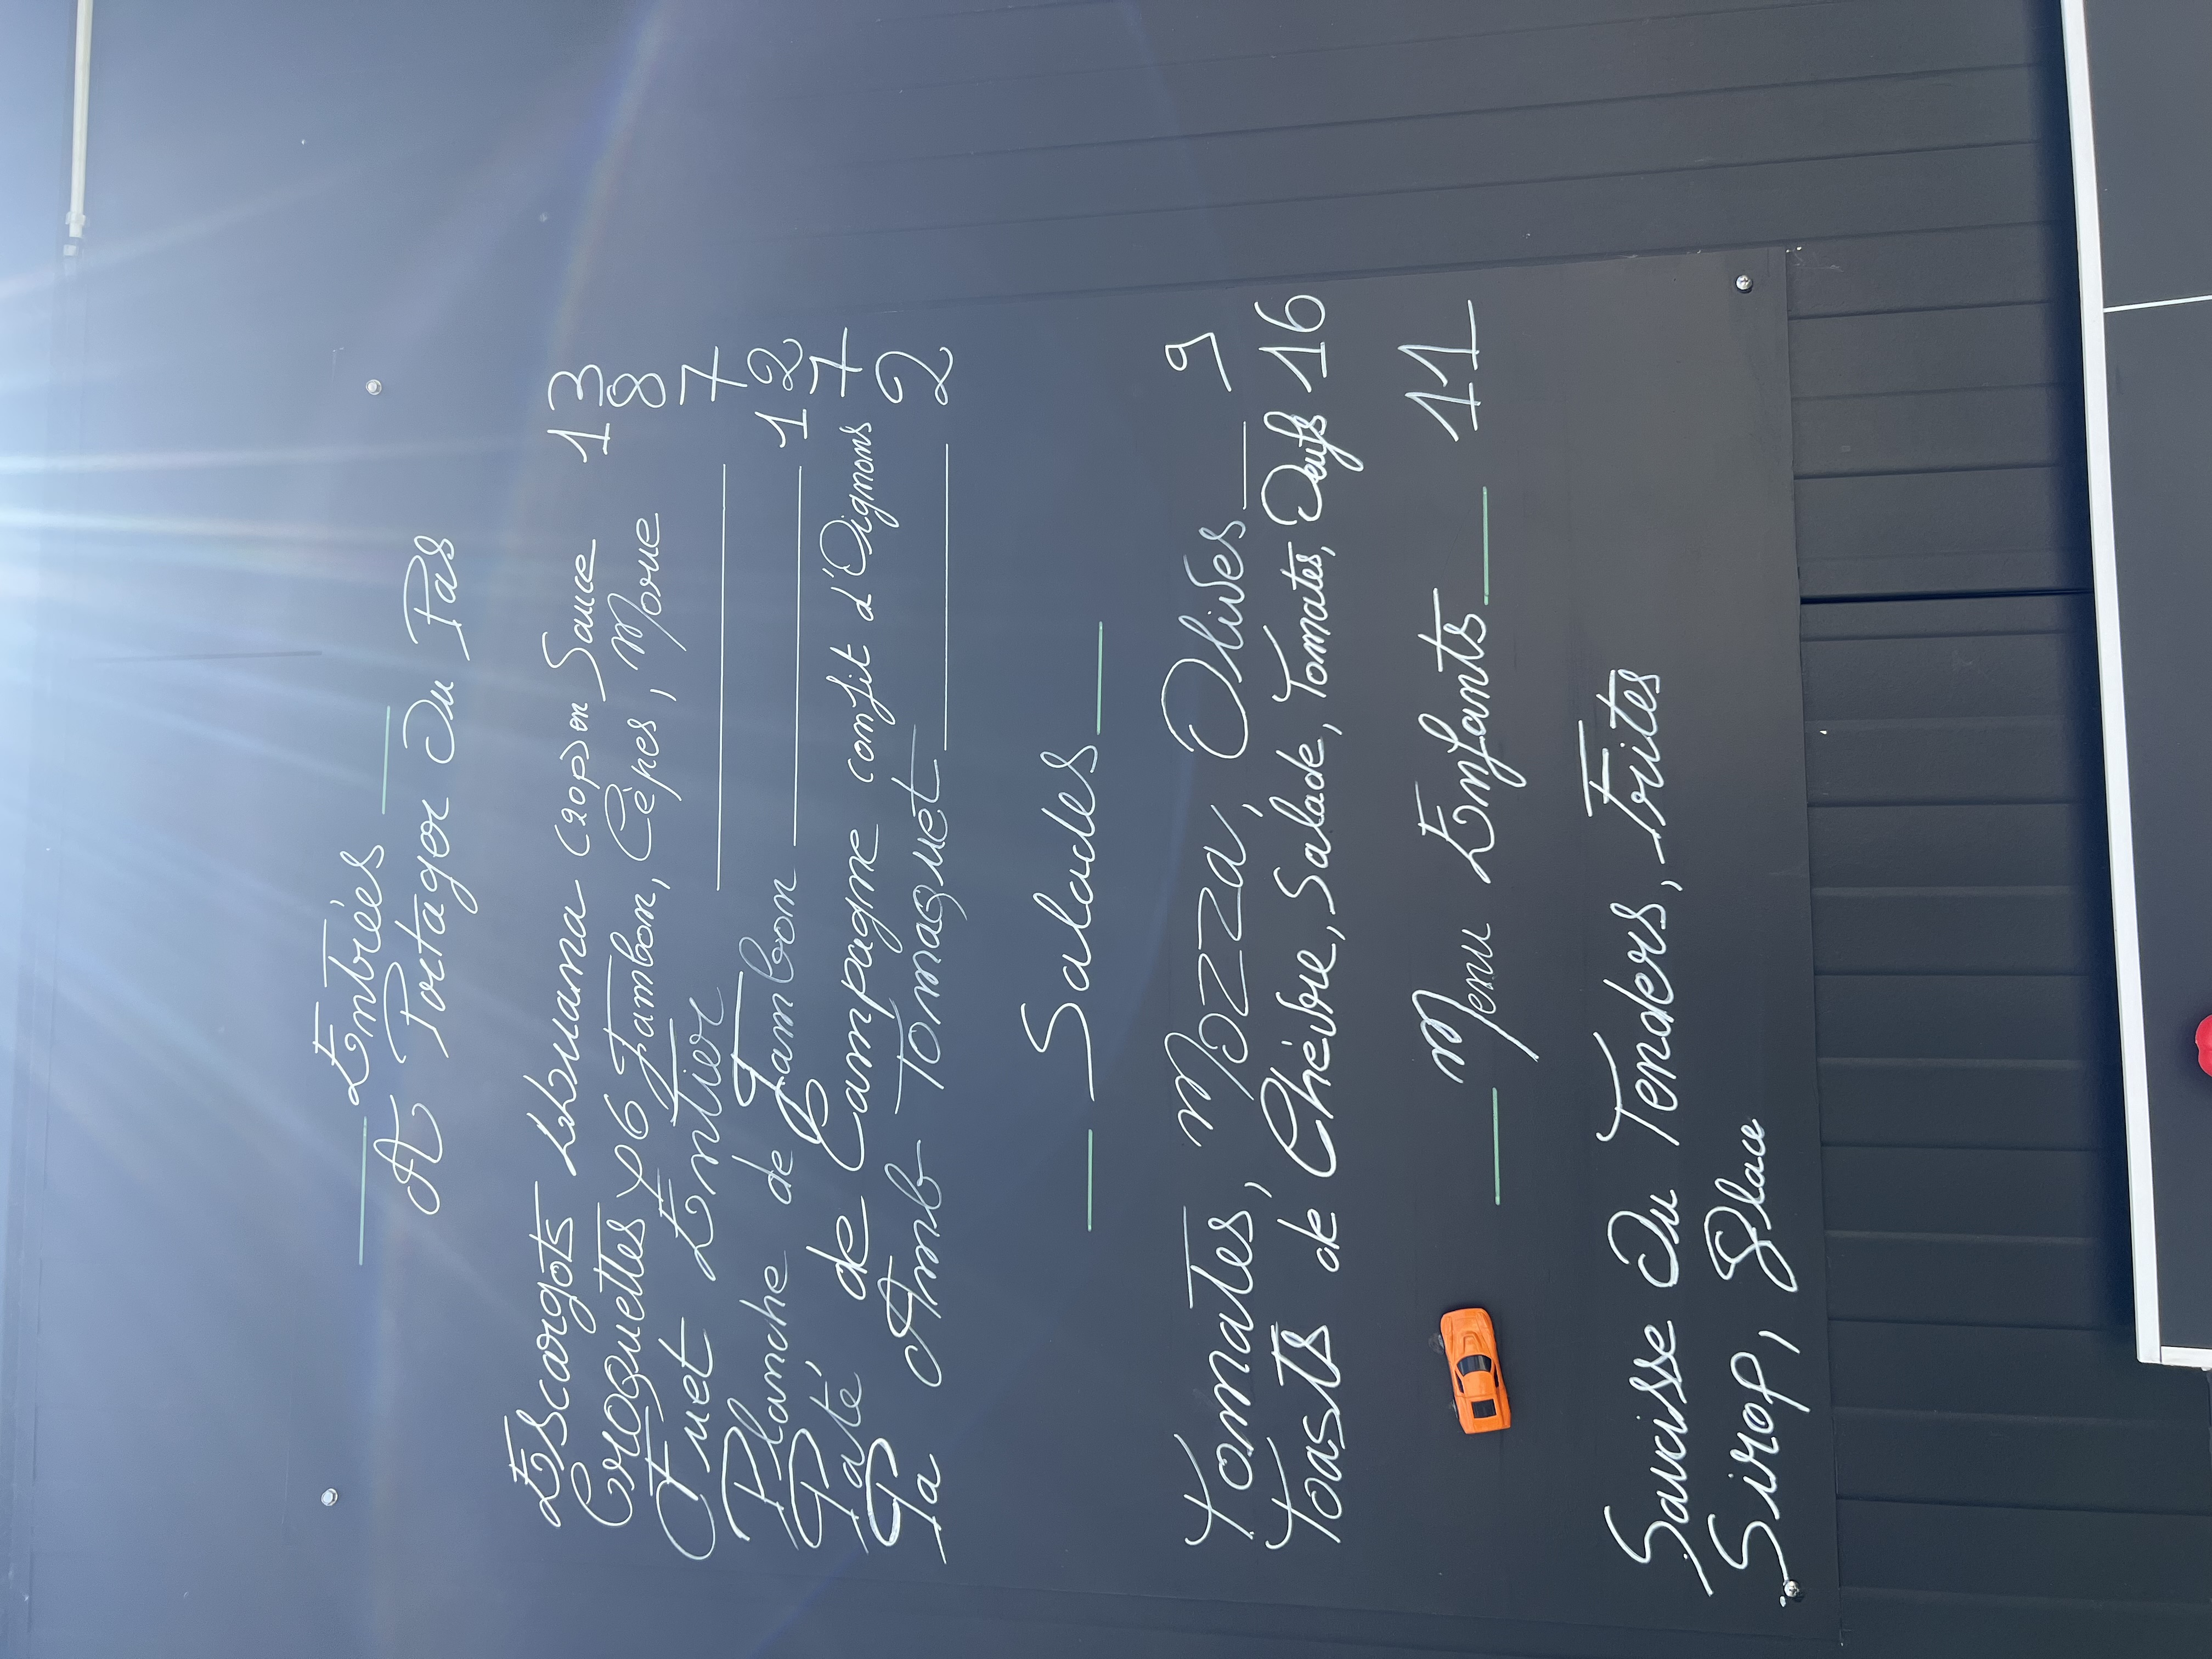 Entrées
A Partager Ou Pas
Escargots Llauna (20p) en Sauce 13
Croquettes x6 Jambon, Cèpes, Morue 8
Fuet Entier 7
Planche de Jambon 12
Paté de Campagne confit d'Oignons 7
Pa Amb Tomaquet 2
Salades
Tomates, Mozza, Olives 9
Toasts de Chèvre, Salade, Tomates, Oeufs 16
Menu Enfants 11
Saucisse Ou Tenders, Frites
Sirop, Glace